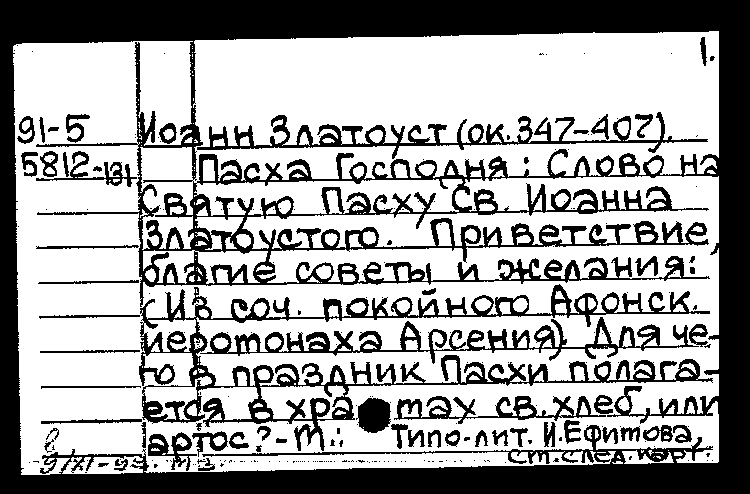 1.
91-5 Иоанн Златоуст (ок. 347-407).
5812-131 Пасха Господня: Слово на
Святую Пасху Св. Иоанна
Златоустого. Приветствие,
благие советы и желания:
(Из соч. покойного Афонск.
иеротонаха Арсения). Для че-
го в праздник Пасхи полага-
ется в храмах св. хлеб, или
артос? - М.: Типо-лит. И. Ефимова,
см. след. карт.